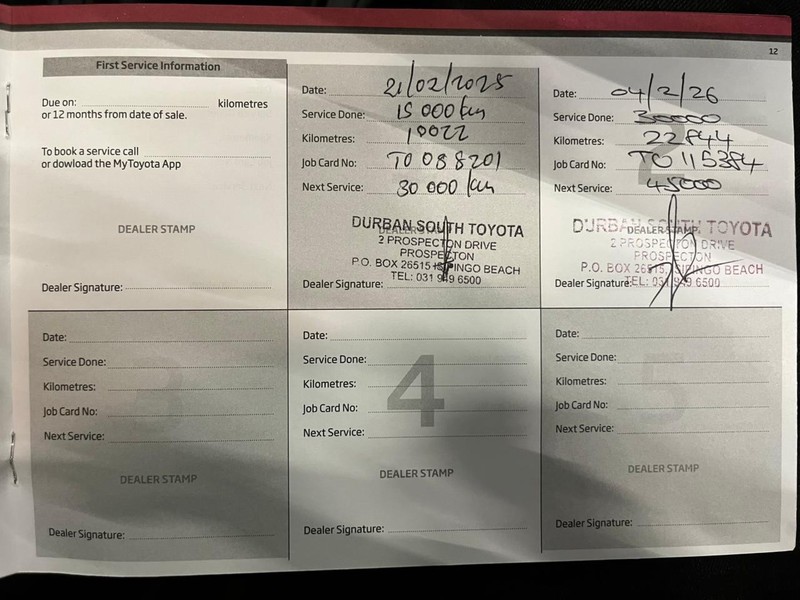 12
First Service Information
Due on: kilometres
or 12 months from date of sale.
To book a service call
or dowload the MyToyota App
DEALER STAMP
Dealer Signature:
Date: 21/02/2025
Service Done: 15 000km
Kilometres: 10022
Job Card No: TO 088201
Next Service: 30 000 km
DEALER STAMP
DURBAN SOUTH TOYOTA
2 PROSPECTON DRIVE
PROSPECTON
P.O. BOX 26515 ISIPINGO BEACH
TEL: 031 949 6500
Dealer Signature:
2
Date: 04/2/26
Service Done: 30000
Kilometres: 22844
Job Card No: TO 115384
Next Service: 45000
DEALER STAMP
DURBAN SOUTH TOYOTA
2 PROSPECTON DRIVE
PROSPECTON
P.O. BOX 26515, ISIPINGO BEACH
TEL: 031 949 6500
Dealer Signature:
3
Date:
Service Done:
Kilometres:
Job Card No:
Next Service:
DEALER STAMP
Dealer Signature:
4
Date:
Service Done:
Kilometres:
Job Card No:
Next Service:
DEALER STAMP
Dealer Signature:
5
Date:
Service Done:
Kilometres:
Job Card No:
Next Service:
DEALER STAMP
Dealer Signature: